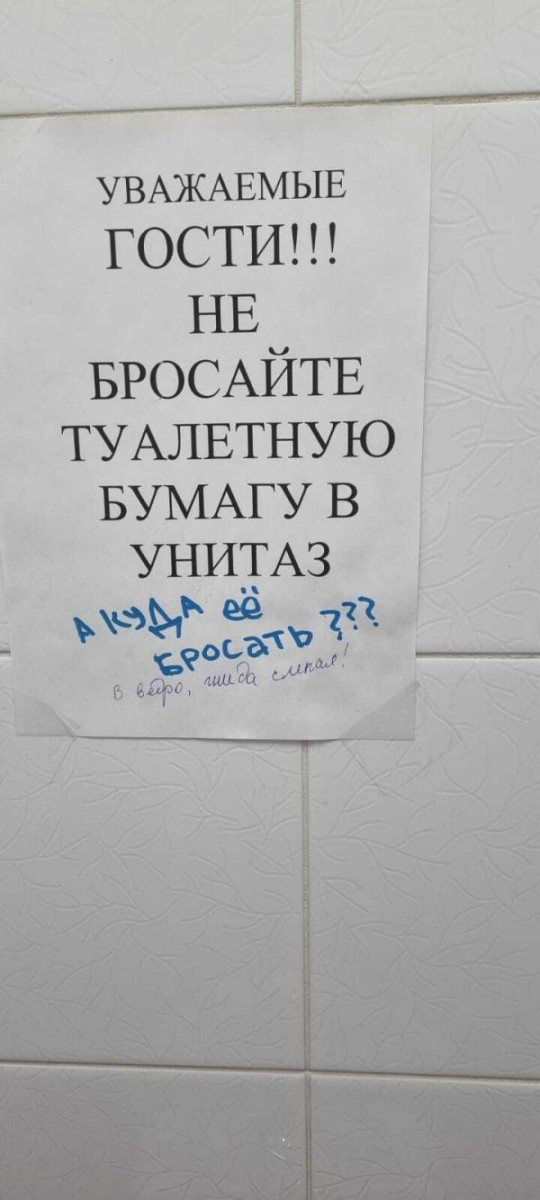 УВАЖАЕМЫЕ
ГОСТИ!!!
НЕ
БРОСАЙТЕ
ТУАЛЕТНУЮ
БУМАГУ В
УНИТАЗ
А КУДА её
БРОСАТЬ???
В ведро, гнида слепая!